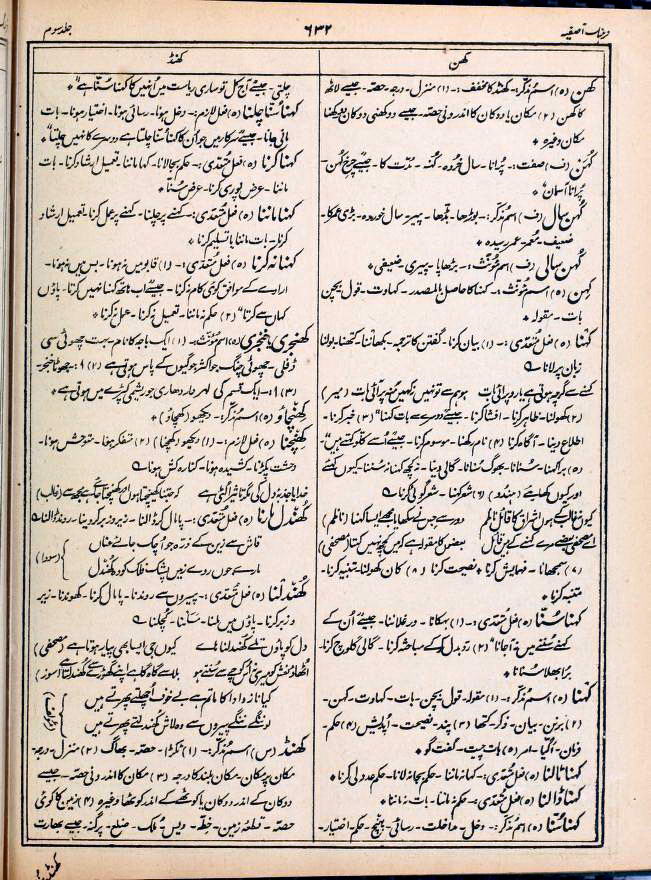 فرہنگ آصفیہ
۶۳۲
جلد سوم
کھن
کھن (ہ) اسم مذکر۔ کھنڈ کا مخفف:۔ (۱) منزل۔ درجہ۔ حصّہ۔ جیسے لاٹھ
کا کھن (۲) مکان یا دوکان کا اندرونی حصّہ۔ جیسے دوکھنی دوکان دوکھنا
مکان وغیرہ *
کُہَن (ف) صفت:۔ پُرانا۔ سال خردہ۔ کُہنہ۔ مدّت کا۔ جیسے چرخ کُہن۔
پُرانا آسمان *
کُہن سال (ف) اسم مذکر:۔ بوڑھا۔ بُڈھا۔ پیر۔ سال خوردہ۔ بڑی عمر کا۔
ضعیف۔ مُعمّر۔ عمر رسیدہ *
کُہن سالی (ف) اسم مؤنث:۔ بڑھاپا۔ پیری۔ ضعیفی *
کہن (ہ) اسم مؤنث:۔ کہنا کا حاصل بالمصدر۔ کہاوت۔ قول۔ بچن
بات۔ مقولہ *
کہنا (ہ) فعل متعدی:۔ (۱) بیان کرنا۔ گفتن کا ترجمہ۔ بکھاننا۔ کتھنا۔ بولنا
زبان پر لانا ؎
کہنے سے گرچہ ہوتی ہے یارو پرائی بات ہم سے تو نہیں رکھیں منہ پر آئی بات (میر)
(۲) کھولنا۔ ظاہر کرنا۔ افشا کرنا۔ جیسے دوسرے سے بات کہنا (۳) خبر کرنا۔
اطلاع دینا۔ آگاہ کرنا (۴) نام رکھنا۔ موسوم کرنا۔ جیسے اُسے کلّو کہتے ہیں۔
(۵) برا کہنا۔ سُنانا۔ بھوگ سُنانا۔ گالی دینا۔ نہ کچھ کہنا نہ سُننا۔ کیوں کہتے
اور کیوں کہاتے (ہندو) (۶) شعر کہنا۔ شعر گوئی کرنا ؎
(۷) سمجھانا۔ فہمایش کرنا۔ نصیحت کرنا (۸) کان کھولنا۔ تنبیہ کرنا۔
متنبہ کرنا *
کہنا سُننا (ہ) فعل متعدی:۔ (۱) بہکانا۔ ورغلاننا۔ جیسے اُن کے
کہنے سُننے میں نہ آجانا (۲) ردوبدل کرنا۔ مباحثہ کرنا۔ گالی گلوچ کرنا۔
برا بھلا سُنانا *
کہنا (ہ) اسم مذکر:۔ (۱) مقولہ۔ قول۔ بچن۔ بات۔ کہاوت۔ کہن۔
(۲) برنن۔ بیان۔ ذکر۔ کتھا (۳) پند۔ نصیحت۔ اُپدیش (۴) حکم۔
فرمان۔ آگیا۔ امر (۵) بات چیت۔ گفت گو *
کہنا ٹالنا (ہ) فعل متعدی:۔ کہا نہ ماننا۔ حکم بجا نہ لانا۔ حکم عدولی کرنا *
کہنا ڈالنا (ہ) فعل متعدی:۔ حکم نہ ماننا۔ بات نہ ماننا *
کہنا سُننا (ہ) اسم مذکر:۔ دخل۔ مداخلت۔ رسائی۔ پہنچ۔ حکم۔ اختیار۔
کھنڈ
چلتی۔ جیسے آج کل تو ساری ریاست میں اُنہیں کا کہنا سُننا ہے *
کہنا سُننا چلنا (ہ) فعل لازم:۔ دخل ہونا۔ رسائی ہونا۔ اختیار ہونا۔ بات
مانی جانا۔ جیسے سرکار میں جو اُن کا کہنا سُننا چلتا ہے دوسرے کا نہیں چلتا *
کہنا کرنا (ہ) فعل متعدی:۔ حکم بجا لانا۔ کہا ماننا۔ تعمیل ارشاد کرنا۔ بات
ماننا۔ عرض پوری کرنا۔ عرض سُننا *
کہنا ماننا (ہ) فعل متعدی:۔ کہنے پر چلنا۔ کہنے پر عمل کرنا۔ تعمیل ارشاد
کرنا۔ بات ماننا یا تسلیم کرنا *
کہنا نہ کرنا (ہ) فعل متعدی:۔ (۱) قابو میں نہ ہونا۔ بس میں نہ ہونا۔
ارادے کے موافق کوئی کام نہ کرنا۔ جیسے اب ہاتھ کہنا نہیں کرتا۔ پاؤں
کہاں ہے کرتا (۲) حکم نہ ماننا۔ تعمیل نہ کرنا۔ عمل نہ کرنا *
کھنجری یا خنجری (ہ) اسم مؤنث:۔ (۱) ایک باجہ کا نام۔ بہت چھوٹی سی
ڈفلی۔ چھوٹی چنگ جو اکثر جوگیوں کے پاس ہوتی ہے (۲) چھوٹا خنجر۔
(۳) ایک قسم کی لہردار دھاری جو ریشمی کپڑے میں ہوتی ہے *
کھنچاؤ (ہ) اسم مذکر:۔ دیکھو (کھچاؤ) *
کھنچنا (ہ) فعل لازم:۔ (۱) دیکھو (کھچنا) (۲) متنفر ہونا۔ متوحش ہونا۔
وحشت پکڑنا۔ کشیدہ ہونا۔ کنارہ کش ہونا ؎
خدایا جذبۂ دل کی مگر تاثیر الٹی ہے کہ جتنا کھینچتا ہوں اور کھنچتا جائے ہے مجھ سے (غالب)
کھُندل مارنا (ہ) فعل متعدی:۔ پامال کر ڈالنا۔ زیر و زبر کر دینا۔ روند ڈالنا ؎
قاش سے زین کے ذرہ جو اُچک جائے عناں
مارے جوں روئے زمیں پشت فلک کو کھُندل (سودا)
کھُندلنا (ہ) فعل متعدی:۔ پیروں سے روندنا۔ پامال کرنا۔ کھوندنا۔ زیر
و زبر کرنا۔ پاؤں میں ملنا۔ سَاننا۔ کُچلنا ؎
کیا ناز و ادا کا ماتم ہے بے خوف اُچھلتے پھرتے ہیں
کھنڈ (س) اسم مذکر:۔ (۱) ٹکڑا۔ حصّہ۔ بھاگ (۲) منزل۔ درجہ
مکان پر مکان۔ مکان بلند کا درجہ (۳) مکان کا اندرونی حصّہ۔ جیسے
دوکان کے اندر دوکان یا کوٹھے کے اندر کوٹھا وغیرہ (۴) زمین کا کوئی
حصّہ۔ قطعۂ زمین۔ خطّہ۔ دیس۔ مُلک۔ ضلع۔ پرگنہ۔ جیسے بھارت